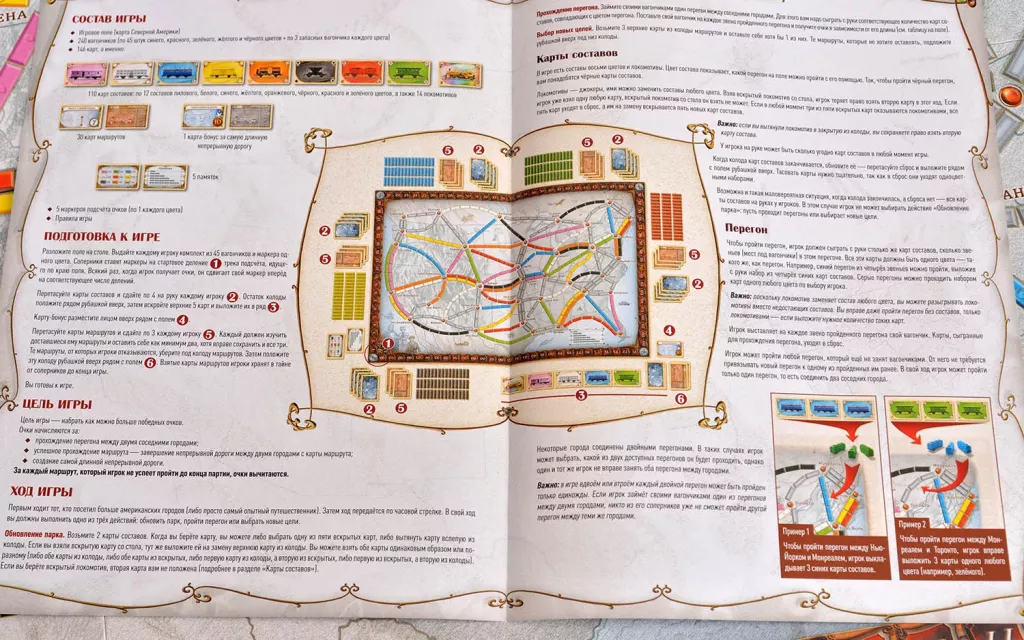 СОСТАВ ИГРЫ
Игровое поле (карта Северной Америки)
240 вагончиков (по 45 штук синего, красного, зелёного, жёлтого и чёрного цветов + по 3 запасных вагончика каждого цвета)
146 карт, а именно:
110 карт составов: по 12 составов лилового, белого, синего, жёлтого, оранжевого, чёрного, красного и зелёного цветов, а также 14 локомотивов
30 карт маршрутов
1 карта-бонус за самую длинную
непрерывную дорогу
5 памяток
5 маркеров подсчёта очков (по 1 каждого цвета)
Правила игры
ПОДГОТОВКА К ИГРЕ
Разложите поле на столе. Выдайте каждому игроку комплект из 45 вагончиков и маркера од-
ного цвета. Соперники ставят маркеры на стартовое деление 1 трека подсчёта, идуще-
го по краю поля. Всякий раз, когда игрок получает очки, он сдвигает свой маркер вперёд
на соответствующее число делений.
Перетасуйте карты составов и сдайте по 4 на руку каждому игроку 2. Остаток колоды
положите рядом рубашкой вверх, затем вскройте верхние 5 карт и выложите их в ряд 3.
Карту-бонус разместите лицом вверх рядом с полем 4
Перетасуйте карты маршрутов и сдайте по 3 каждому игроку 5. Каждый должен изучить
доставшиеся ему маршруты и оставить себе как минимум два, хотя вправе сохранить и все три.
Те маршруты, от которых игроки отказываются, уберите под колоду маршрутов. Затем положите
эту колоду рубашкой вверх рядом с полем 6. Взятые карты маршрутов игроки хранят в тайне
от соперников до конца игры.
Вы готовы к игре.
ЦЕЛЬ ИГРЫ
Цель игры — набрать как можно больше победных очков.
Очки начисляются за:
прохождение перегона между двумя соседними городами;
успешное прохождение маршрута — завершение непрерывной дороги между двумя городами с карты маршрута;
создание самой длинной непрерывной дороги.
За каждый маршрут, который игрок не успеет пройти до конца партии, очки вычитаются.
ХОД ИГРЫ
Первым ходит тот, кто посетил больше американских городов (либо просто самый опытный путешественник). Затем ход передаётся по часовой стрелке. В свой ход
вы должны выполнить одно из трёх действий: обновить парк, пройти перегон или выбрать новые цели.
Обновление парка. Возьмите 2 карты составов. Когда вы берёте карту, вы можете либо выбрать одну из пяти вскрытых карт, либо вытянуть карту вслепую из
колоды. Если вы взяли вскрытую карту со стола, тут же выложите ей на замену верхнюю карту из колоды. Вы можете взять обе карты одинаковым образом или по-
разному (либо обе карты из колоды, либо обе карты из вскрытых, либо первую карту из колоды, а вторую из вскрытых, либо первую из вскрытых, а вторую из колоды).
Если вы берёте вскрытый локомотив, вторая карта вам не положена (подробнее в разделе «Карты составов»).
Прохождение перегона. Займите своими вагончиками один перегон между соседними городами. Для этого вам надо сыграть с руки соответствующее количество карт со-
ставов, совпадающих с цветом перегона. Поставьте свой вагончик на каждое звено пройденного перегона и получите очки в зависимости от его длины (см. таблицу на поле).
Выбор новых целей. Возьмите 3 верхние карты из колоды маршрутов и оставьте себе хотя бы 1 из них. Те маршруты, которые не хотите оставлять, подложите
рубашкой вверх под низ колоды.
Карты составов
В игре есть составы восьми цветов и локомотивы. Цвет состава показывает, какой перегон на поле можно пройти с его помощью. Так, чтобы пройти чёрный перегон,
вам понадобятся чёрные карты составов.
Локомотивы — джокеры, ими можно заменить составы любого цвета. Взяв вскрытый локомотив со стола, игрок теряет право взять вторую карту в этот ход. Если
игрок уже взял одну любую карту, вскрытый локомотив со стола он взять не может. Если в любой момент три из пяти вскрытых карт оказываются локомотивами, все
пять карт уходят в сброс, а им на замену вскрывается пять новых карт составов.
Важно: если вы вытянули локомотив в закрытую из колоды, вы сохраняете право взять вторую
карту состава.
У игрока на руке может быть сколько угодно карт составов в любой момент игры.
Когда колода карт составов заканчивается, обновите её — перетасуйте сброс и выложите рядом
с полем рубашкой вверх. Тасовать карты нужно тщательно, так как в сброс они уходят одноцвет-
ными наборами.
Возможна и такая маловероятная ситуация, когда колода закончилась, а сброса нет — все кар-
ты составов на руках у игроков. В этом случае игрок не может выбирать действие «Обновление
парка»: пусть проходит перегоны или выбирает новые цели.
Перегон
Чтобы пройти перегон, игрок должен сыграть с руки столько же карт составов, сколько зве-
ньев (мест под вагончики) в этом перегоне. Все эти карты должны быть одного цвета — та-
кого же, как перегон. Например, синий перегон из четырёх звеньев можно пройти, выложив
с руки набор из четырёх синих карт составов. Серые перегоны можно проходить набором
карт одного любого цвета по выбору игрока.
Важно: поскольку локомотив заменяет состав любого цвета, вы можете разыгрывать локо-
мотивы вместо недостающих составов. Вы вправе даже пройти перегон без составов, только
локомотивами — если выложите нужное количество таких карт.
Игрок выставляет на каждое звено пройденного перегона свой вагончик. Карты, сыгранные
для прохождения перегона, уходят в сброс.
Игрок может пройти любой перегон, который ещё не занят вагончиками. От него не требуется
привязывать новый перегон к одному из пройденных им ранее. В свой ход игрок может пройти
только один перегон, то есть соединить два соседних города.
Некоторые города соединены двойными перегонами. В таких случаях игрок
может выбрать, какой из двух доступных перегонов он будет проходить, однако
один и тот же игрок не вправе занять оба перегона между городами.
Важно: в игре вдвоём или втроём каждый двойной перегон может быть пройден
только единожды. Если игрок займёт своими вагончиками один из перегонов
между двумя городами, никто из его соперников уже не сможет пройти другой
перегон между теми же городами.
Пример 1
Чтобы пройти перегон между Нью-
Йорком и Монреалем, игрок выкла-
дывает 3 синих карты составов.
Пример 2
Чтобы пройти перегон между Мон-
реалем и Торонто, игрок вправе
выложить 3 карты одного любого
цвета (например, зелёного).